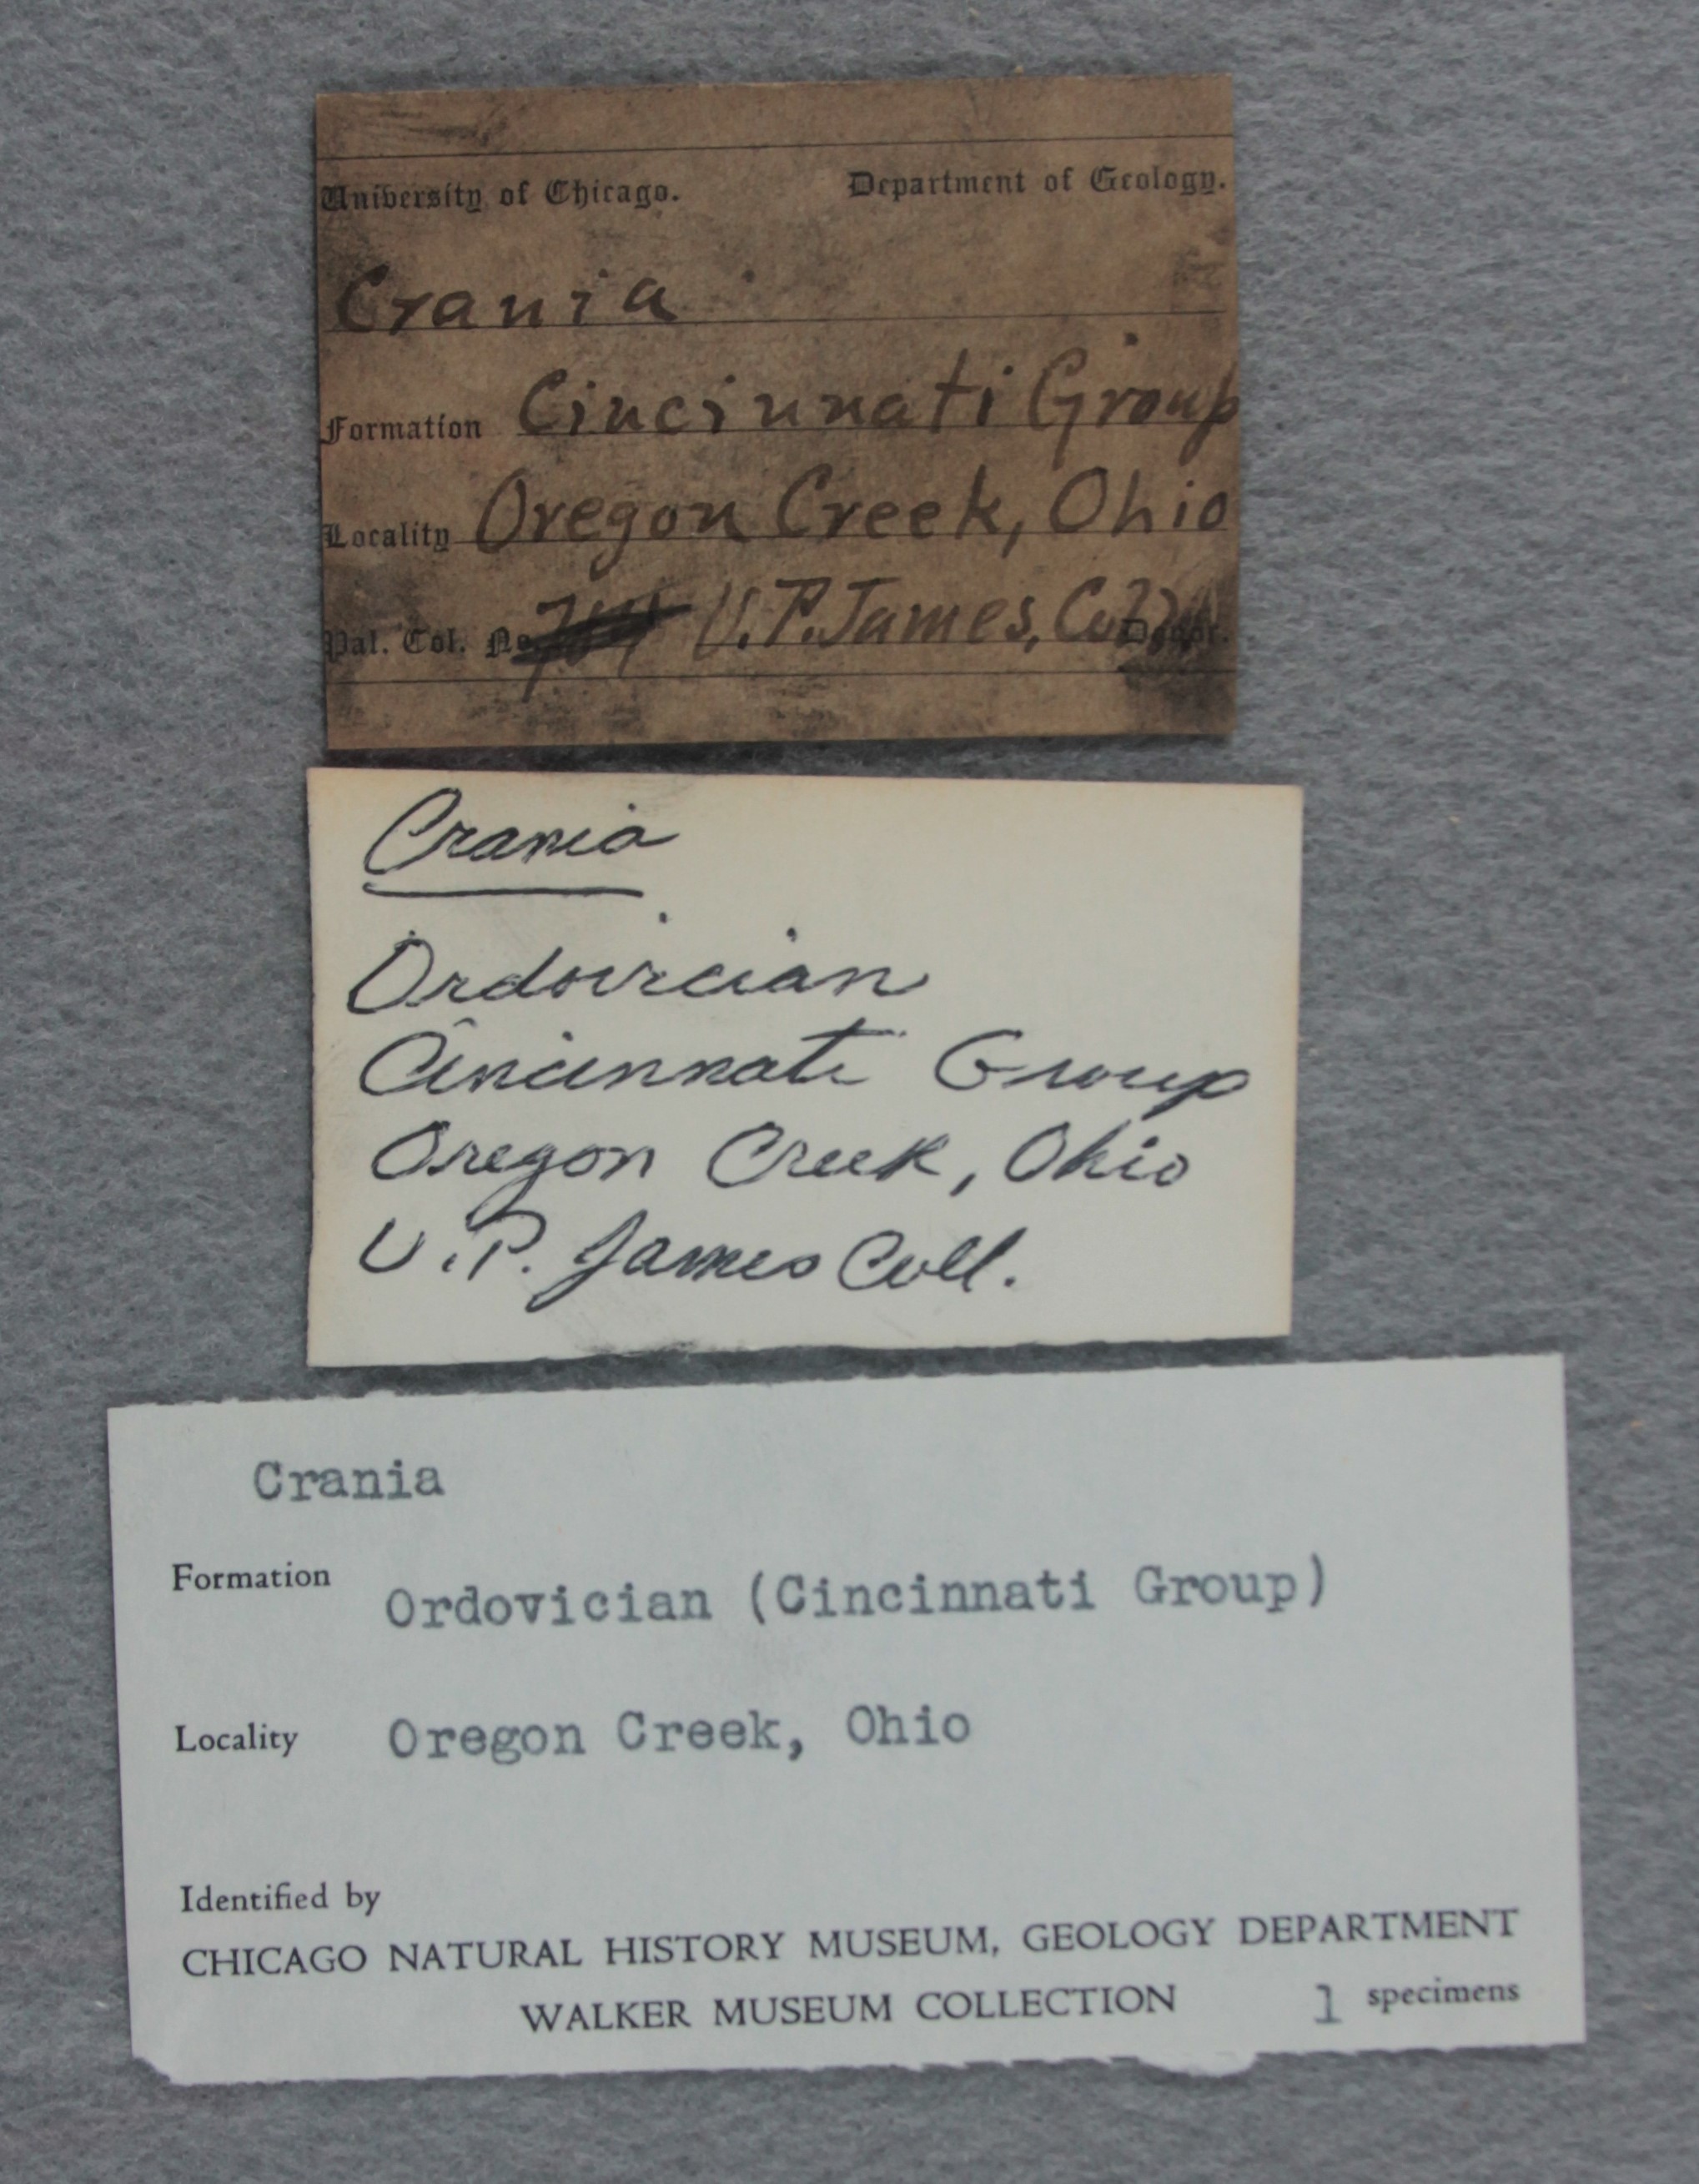 University of Chicago. Department of Geology.
Crania
Formation Cincinnati Group
Locality Oregon Creek, Ohio
Pal. Col. No. U.P. James, Donor.
Crania
Ordovician
Cincinnati Group
Oregon Creek, Ohio
U.P. James Coll.
Crania
Formation Ordovician (Cincinnati Group)
Locality Oregon Creek, Ohio
Identified by
CHICAGO NATURAL HISTORY MUSEUM, GEOLOGY DEPARTMENT
WALKER MUSEUM COLLECTION 1 specimens